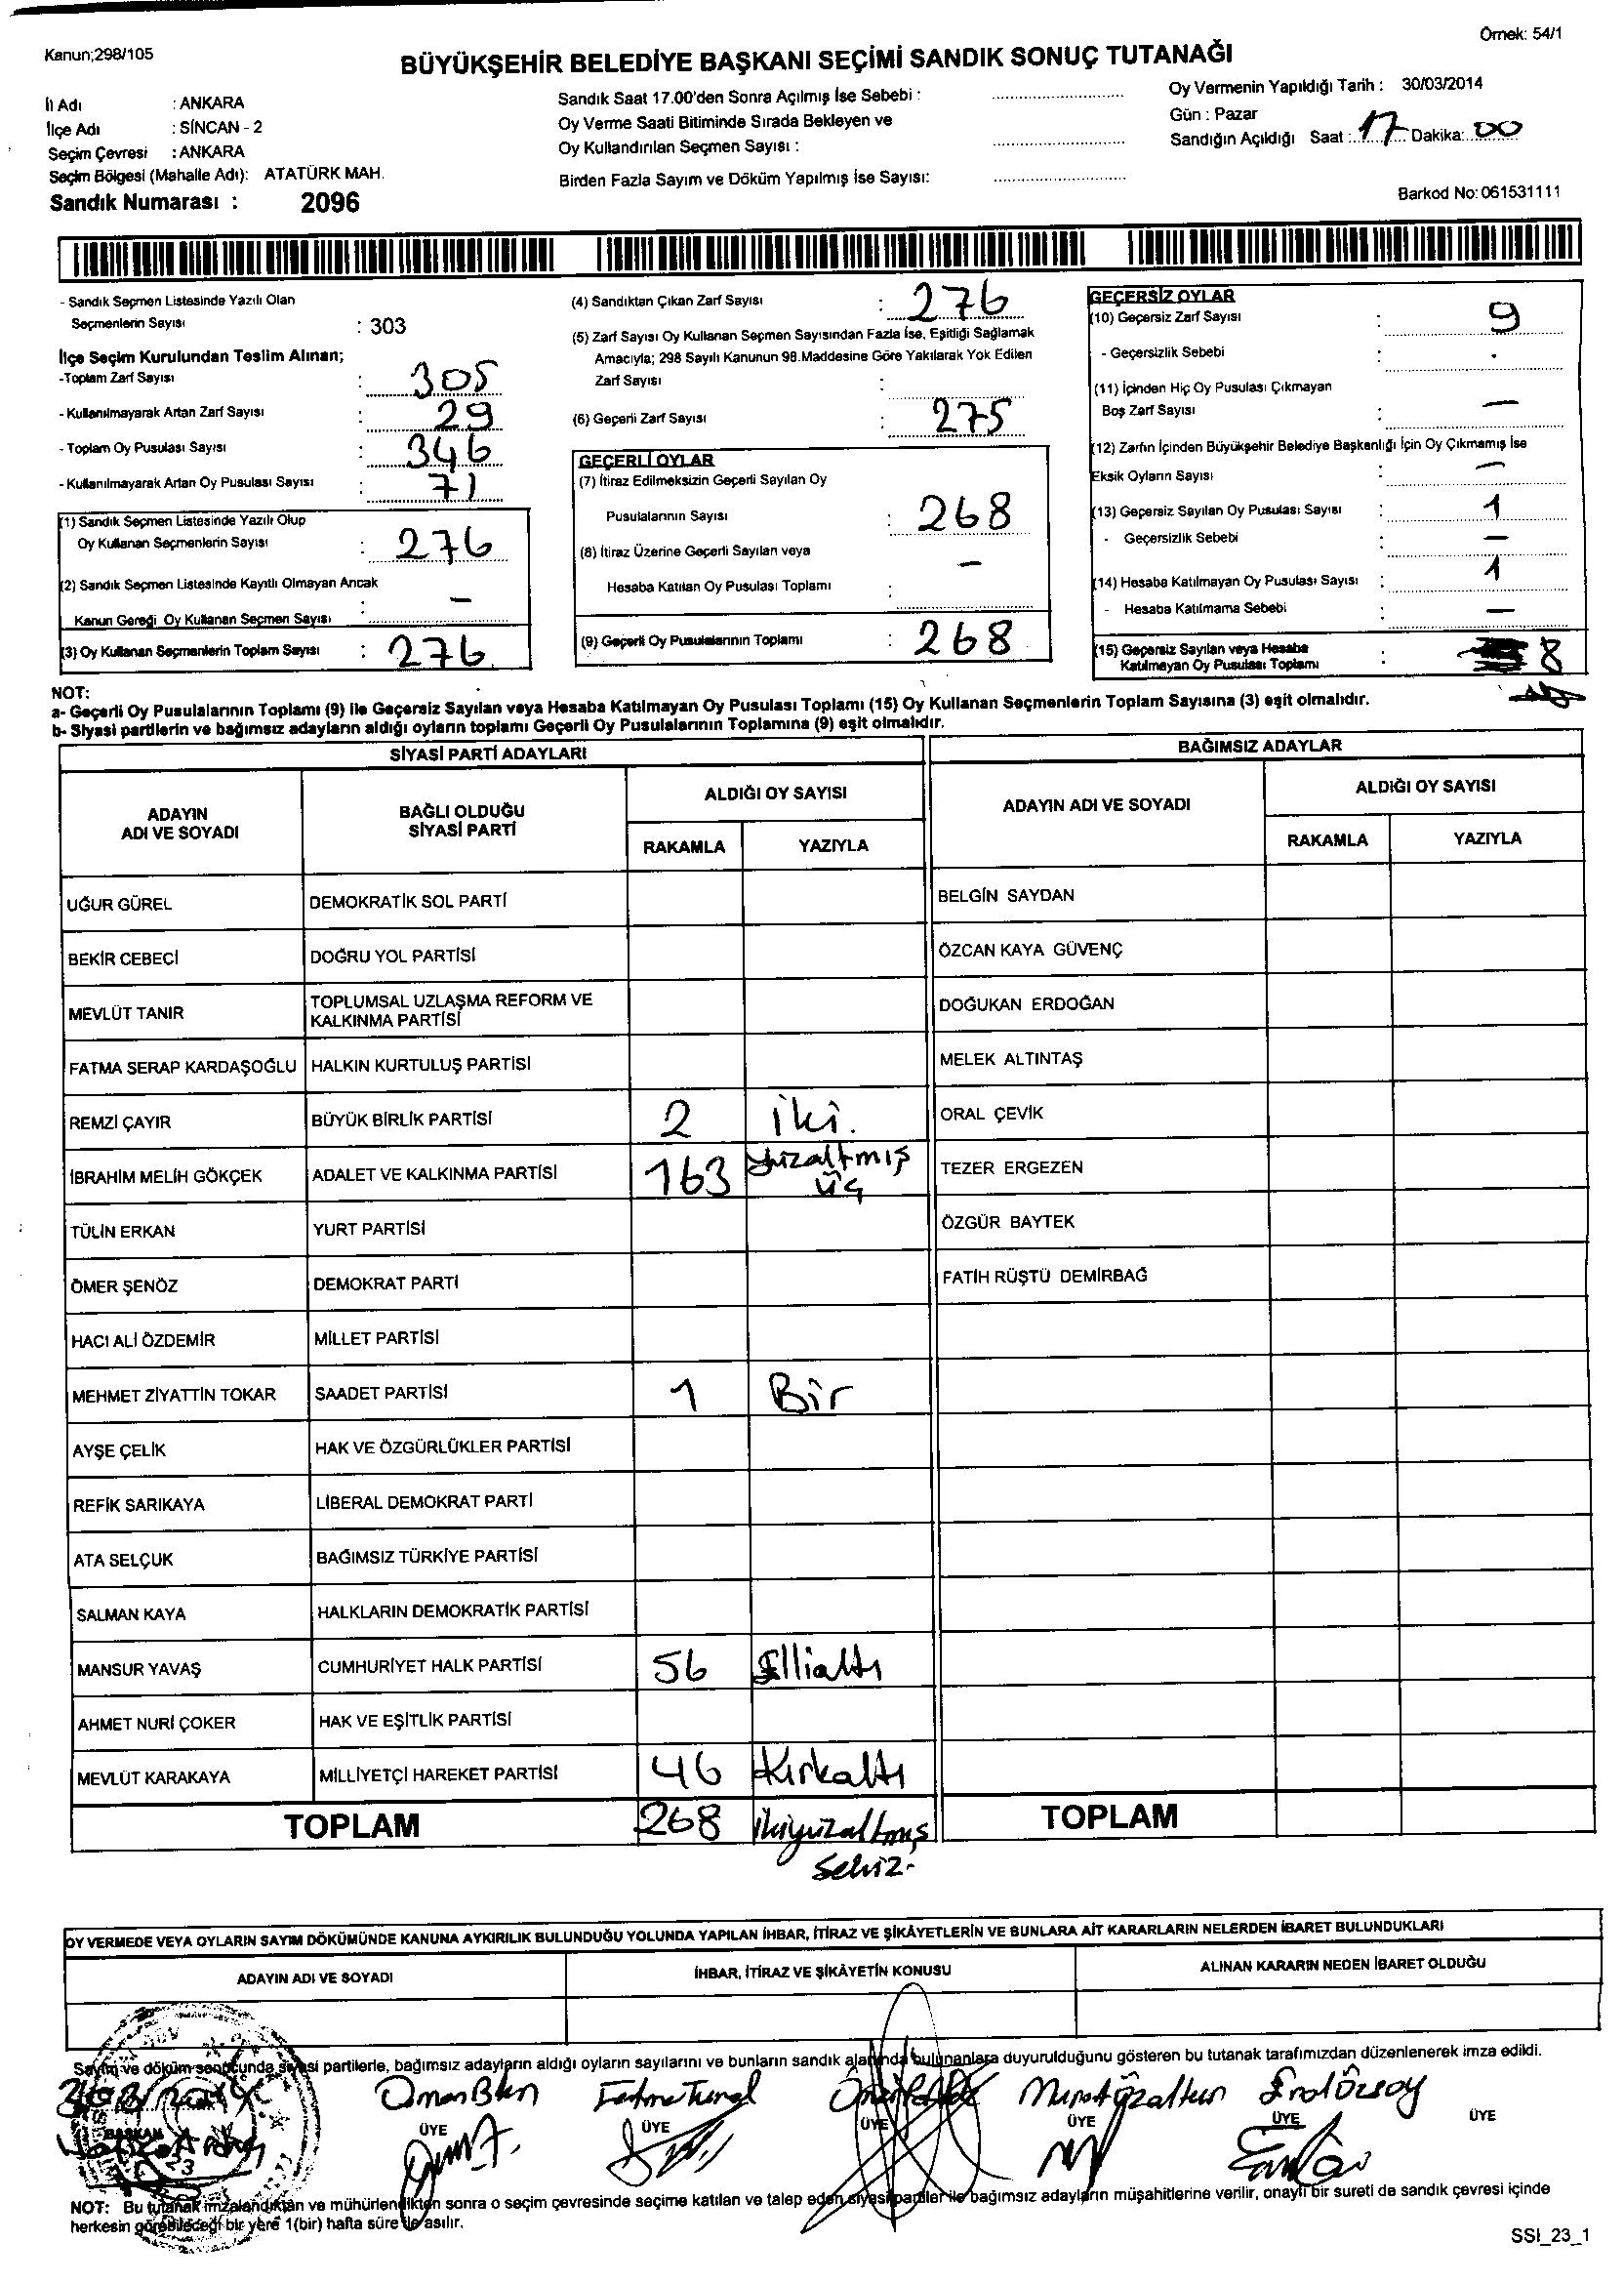 Kanun;298/105
Örnek: 54/1
BÜYÜKŞEHİR BELEDİYE BAŞKANI SEÇİMİ SANDIK SONUÇ TUTANAĞI
İl Adı : ANKARA
İlçe Adı : SİNCAN - 2
Seçim Çevresi : ANKARA
Seçim Bölgesi (Mahalle Adı): ATATÜRK MAH.
Sandık Numarası : 2096
Sandık Saat 17.00'den Sonra Açılmış İse Sebebi :
Oy Verme Saati Bitiminde Sırada Bekleyen ve
Oy Kullandırılan Seçmen Sayısı :
Birden Fazla Sayım ve Döküm Yapılmış İse Sayısı:
Oy Vermenin Yapıldığı Tarih : 30/03/2014
Gün : Pazar
Sandığın Açıldığı Saat : 17 Dakika: 00
Barkod No: 061531111
- Sandık Seçmen Listesinde Yazılı Olan
Seçmenlerin Sayısı : 303
İlçe Seçim Kurulundan Teslim Alınan;
-Toplam Zarf Sayısı : 305
- Kullanılmayarak Artan Zarf Sayısı : 29
- Toplam Oy Pusulası Sayısı : 346
- Kullanılmayarak Artan Oy Pusulası Sayısı : 71
(1) Sandık Seçmen Listesinde Yazılı Olup
Oy Kullanan Seçmenlerin Sayısı : 276
(2) Sandık Seçmen Listesinde Kayıtlı Olmayan Ancak
Kanun Gereği Oy Kullanan Seçmen Sayısı : –
(3) Oy Kullanan Seçmenlerin Toplam Sayısı : 276
(4) Sandıktan Çıkan Zarf Sayısı : 276
(5) Zarf Sayısı Oy Kullanan Seçmen Sayısından Fazla İse, Eşitliği Sağlamak
Amacıyla; 298 Sayılı Kanunun 98.Maddesine Göre Yakılarak Yok Edilen
Zarf Sayısı :
(6) Geçerli Zarf Sayısı : 275
GEÇERLİ OYLAR
(7) İtiraz Edilmeksizin Geçerli Sayılan Oy
Pusulalarının Sayısı : 268
(8) İtiraz Üzerine Geçerli Sayılan veya
Hesaba Katılan Oy Pusulası Toplamı : –
(9) Geçerli Oy Pusulalarının Toplamı : 268
GEÇERSİZ OYLAR
(10) Geçersiz Zarf Sayısı : 9
- Geçersizlik Sebebi :
(11) İçinden Hiç Oy Pusulası Çıkmayan
Boş Zarf Sayısı : –
(12) Zarfın İçinden Büyükşehir Belediye Başkanlığı İçin Oy Çıkmamış İse
Eksik Oyların Sayısı : –
(13) Geçersiz Sayılan Oy Pusulası Sayısı : 1
- Geçersizlik Sebebi : –
(14) Hesaba Katılmayan Oy Pusulası Sayısı : 1
- Hesaba Katılmama Sebebi : –
(15) Geçersiz Sayılan veya Hesaba
Katılmayan Oy Pusulası Toplamı : 8
NOT:
a- Geçerli Oy Pusulalarının Toplamı (9) ile Geçersiz Sayılan veya Hesaba Katılmayan Oy Pusulası Toplamı (15) Oy Kullanan Seçmenlerin Toplam Sayısına (3) eşit olmalıdır.
b- Siyasi partilerin ve bağımsız adayların aldığı oyların toplamı Geçerli Oy Pusulalarının Toplamına (9) eşit olmalıdır.
SİYASİ PARTİ ADAYLARI
ADAYIN
ADI VE SOYADI
BAĞLI OLDUĞU
SİYASİ PARTİ
ALDIĞI OY SAYISI
RAKAMLA YAZIYLA
UĞUR GÜREL DEMOKRATİK SOL PARTİ
BEKİR CEBECİ DOĞRU YOL PARTİSİ
MEVLÜT TANIR TOPLUMSAL UZLAŞMA REFORM VE
KALKINMA PARTİSİ
FATMA SERAP KARDAŞOĞLU HALKIN KURTULUŞ PARTİSİ
REMZİ ÇAYIR BÜYÜK BİRLİK PARTİSİ 2 iki.
İBRAHİM MELİH GÖKÇEK ADALET VE KALKINMA PARTİSİ 163 yüzaltmış
üç
TÜLİN ERKAN YURT PARTİSİ
ÖMER ŞENÖZ DEMOKRAT PARTİ
HACI ALİ ÖZDEMİR MİLLET PARTİSİ
MEHMET ZİYATTİN TOKAR SAADET PARTİSİ 1 Bir
AYŞE ÇELİK HAK VE ÖZGÜRLÜKLER PARTİSİ
REFİK SARIKAYA LİBERAL DEMOKRAT PARTİ
ATA SELÇUK BAĞIMSIZ TÜRKİYE PARTİSİ
SALMAN KAYA HALKLARIN DEMOKRATİK PARTİSİ
MANSUR YAVAŞ CUMHURİYET HALK PARTİSİ 56 Ellialtı
AHMET NURİ ÇOKER HAK VE EŞİTLİK PARTİSİ
MEVLÜT KARAKAYA MİLLİYETÇİ HAREKET PARTİSİ 46 Kırkaltı
TOPLAM 268 ikiyüzaltmış
sekiz.
BAĞIMSIZ ADAYLAR
ADAYIN ADI VE SOYADI
ALDIĞI OY SAYISI
RAKAMLA YAZIYLA
BELGİN SAYDAN
ÖZCAN KAYA GÜVENÇ
DOĞUKAN ERDOĞAN
MELEK ALTINTAŞ
ORAL ÇEVİK
TEZER ERGEZEN
ÖZGÜR BAYTEK
FATİH RÜŞTÜ DEMİRBAĞ
TOPLAM
OY VERMEDE VEYA OYLARIN SAYIM DÖKÜMÜNDE KANUNA AYKIRILIK BULUNDUĞU YOLUNDA YAPILAN İHBAR, İTİRAZ VE ŞİKÂYETLERİN VE BUNLARA AİT KARARLARIN NELERDEN İBARET BULUNDUKLARI
ADAYIN ADI VE SOYADI İHBAR, İTİRAZ VE ŞİKÂYETİN KONUSU ALINAN KARARIN NEDEN İBARET OLDUĞU
Sayım ve döküm sonucunda siyasi partilerle, bağımsız adayların aldığı oyların sayılarını ve bunların sandık alanında bulunanlara duyurulduğunu gösteren bu tutanak tarafımızdan düzenlenerek imza edildi.
Fatma Tunal Murat Özaltun Erol Özsoy
BAŞKAN ÜYE ÜYE ÜYE ÜYE ÜYE ÜYE
NOT: Bu tutanak imzalandıktan ve mühürlendikten sonra o seçim çevresinde seçime katılan ve talep eden siyasi partiler ile bağımsız adayların müşahitlerine verilir, onaylı bir sureti de sandık çevresi içinde
herkesin görebileceği bir yere 1(bir) hafta süre ile asılır.
SSI_23_1